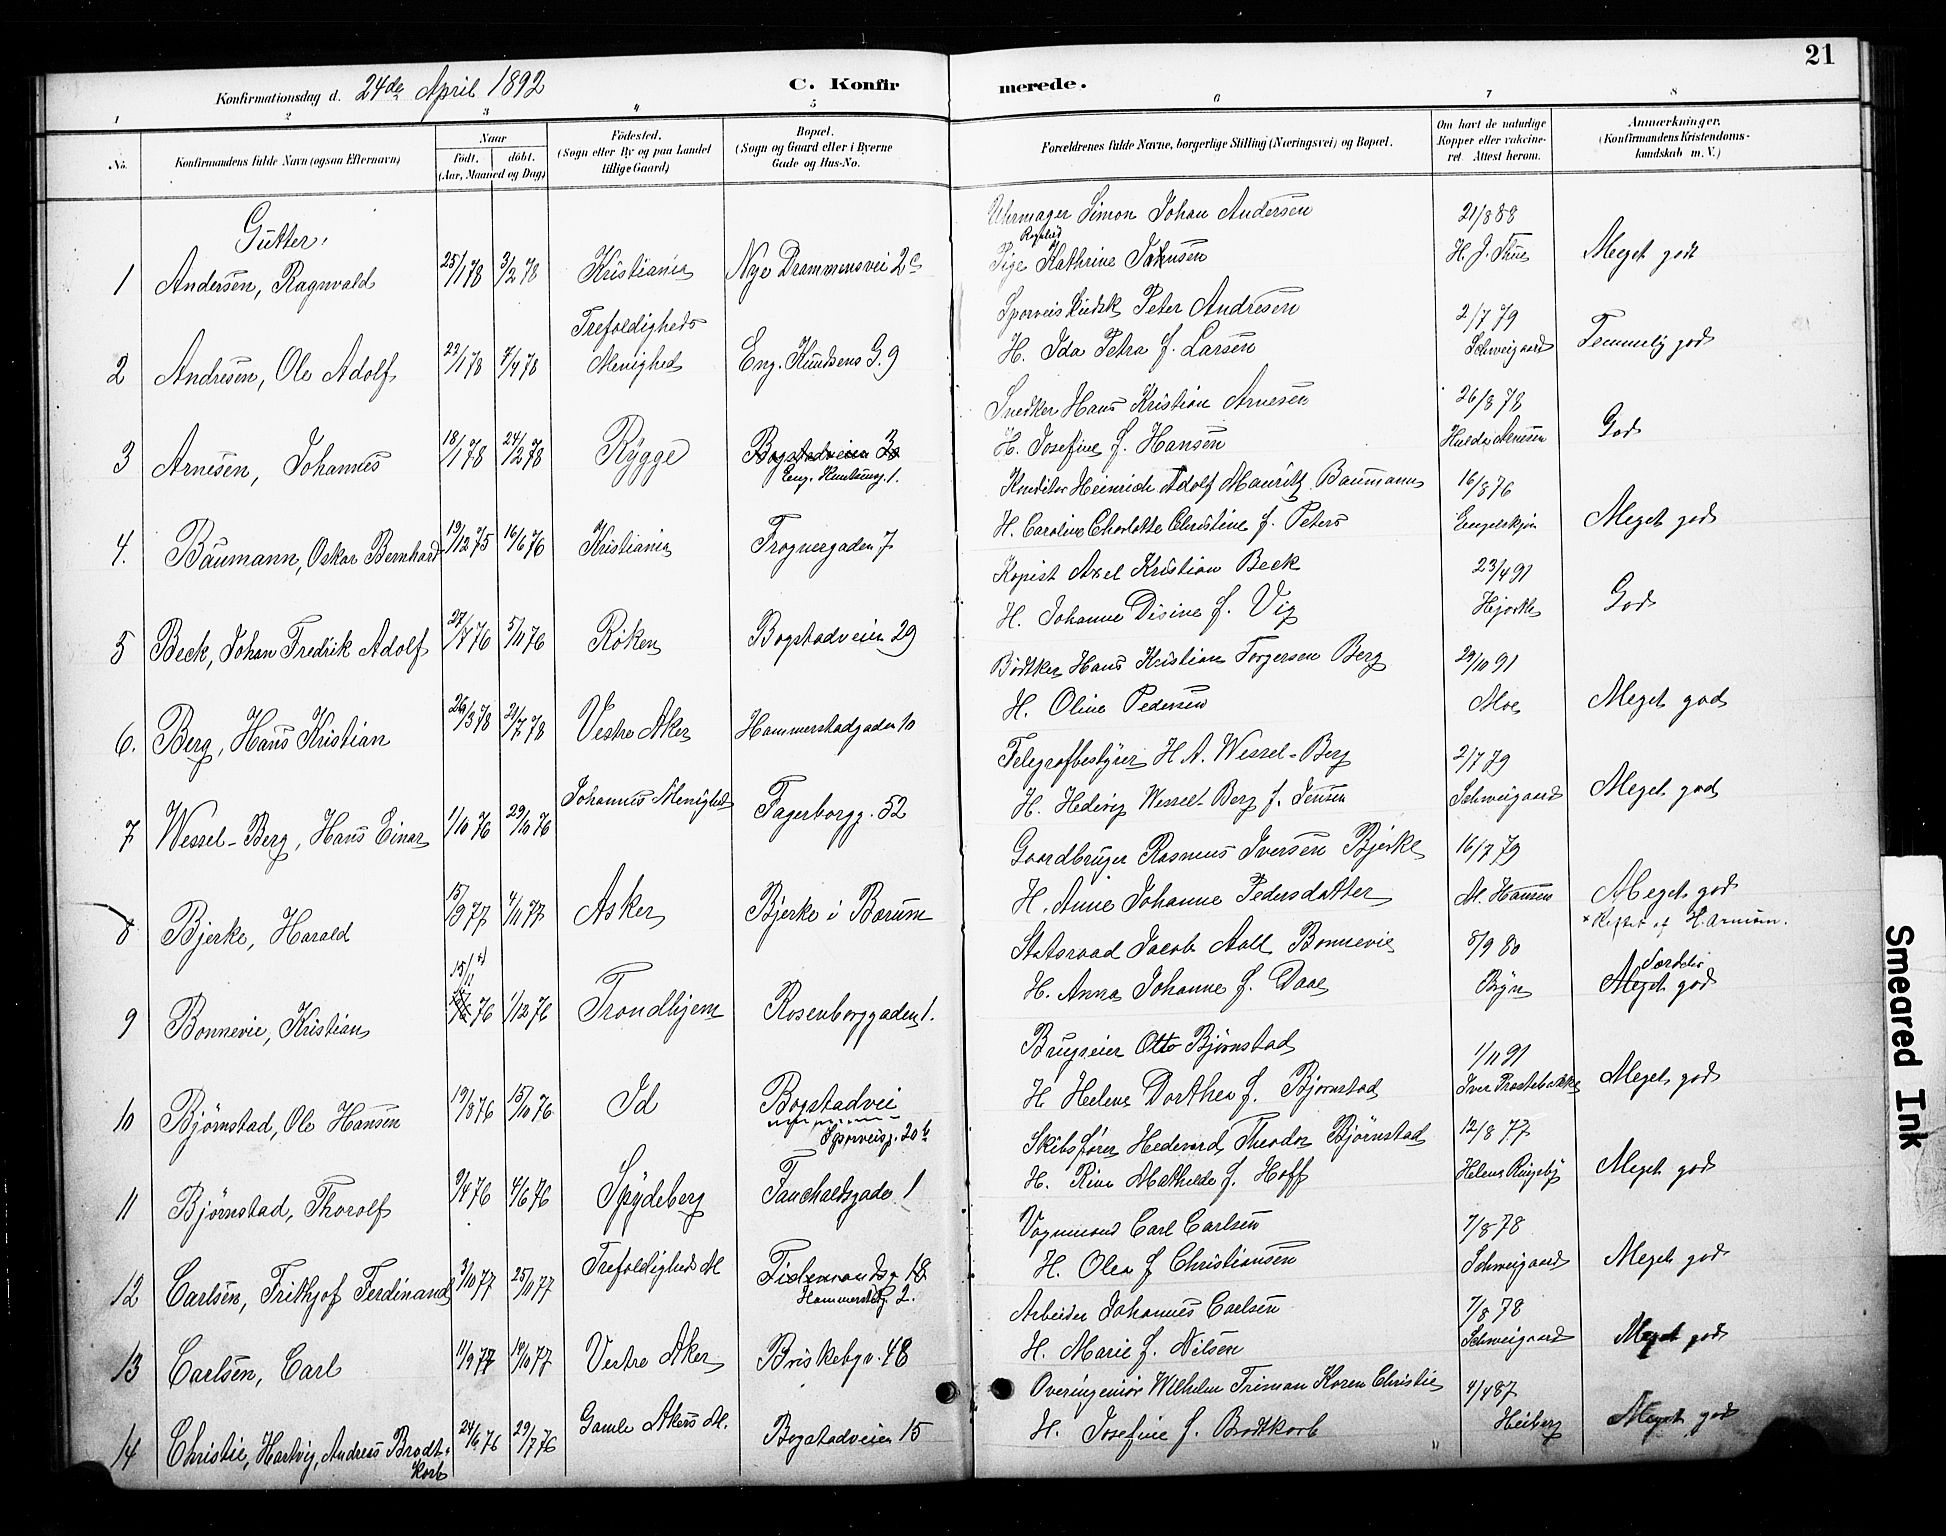 21
Konfirmationsdag d. 24de April 1892
C. Konfirmerede.
1 2 3 4 5 6 7 8
No. Konfirmandens fulde Navn (ogsaa Efternavn) Naar født. døbt. (Aar, Maaned og Dag) Födested. (Sogn eller By og paa Landet tillige Gaard) Bopæl. (Sogn og Gaard eller i Byerne Gade og Hus-No. Forældrenes fulde Navne, borgerlige Stilling (Næringsvei) og Bopæl. Om havt de naturlige Kopper eller vakcineret. Attest herom. Anmærkninger. (Konfirmandens Kristendomskundskab m. V.)
Gutter.
Uhrmager Simon Johan Andersen 21/8 88
1 Andersen, Ragnvald 25/1 78 3/2 78 Kristiania Nye Drammensvei 2c Pige Kathrine H. J. Thue Meget godt
Sporveiskudsk Peter Andresen 2/7 79
2 Andresen, Ole Adolf 22/1 78 7/4 78 Trefoldigheds Menighed Eng. Knudsens G. 9 H. Ida Petra f. Larsen Schweigaard Temmelig god
Snedker Hans Kristian Arnesen 26/8 78
3 Arnesen, Johannes 18/1 78 24/12 78 Rygge Bogstadveien 3 Eng. Knutseng. 1. H. Josefine f. Hansen God
Konditor Heinrich Adolf Mauritz Baumann 16/8 76
4. Baumann, Oskar Bernhard 19/12 75 16/6 76 Kristiania Frognergaden 7 H. Caroline Charlotte Christine f. Peters Engelskjøn Meget god
Kopist Axel Kristian Beck 23/4 91
5 Beck, Johan Fredrik Adolf 27/7 76 5/11 76 Røken Bogstadveien 29 H. Johanne Disine f. Vig Hjorth God
Bødtker Hans Kristian Torgersen Berg 29/10 91
6. Berg, Hans Kristian 26/3 78 21/7 78 Vestre Aker Hammerstadgaden 10 H. Oline Pedersen Moe Meget god
Telegrafbestyrer H. A. Wessel-Berg 2/7 79
7 Wessel-Berg, Hans Einar 1/10 76 29/10 76 Johannes Menighed Fagerborgg. 52 H. Hedevig Wessel-Berg f. Jensen Schweigaard Meget god
Gaardbruger Rasmus Iversen Bjerke 16/7 79
8 Bjerke, Harald 15/9 77 4/11 77 Asker Bjerke i Bærum H. Anne Johanne Pedersdatter M. Hansen Meget god
Statsraad Jacob Aall Bonnevie 8/9 80
9 Bonnevie, Kristian 15/11 76 1/12 76 Trondhjem Rosenborggaden 1. H. Anna Johanne f. Daae Meget god
Brugseier Otto Bjørnstad 1/11 91
10 Bjørnstad, Ole Hansen 19/8 76 15/10 76 Id Bogstadvei Sporveisg. 20 b H. Helene Dorthea f. Bjørnstad Iver Præstebakke Meget god
Skibsfører Hedevard Theodor Bjørnstad 12/8 77
11 Bjørnstad, Thorolf 9/4 76 4/6 76 Spydeberg Fauchaldsgade 1 H. Rina Mathilde f. Hoff Helene Ringsby Meget god
Vognmand Carl Carlsen 7/8 78
12 Carlsen, Frithjof Ferdinand 3/10 77 25/10 77 Trefoldigheds M Tidemandsg 18 Hammerstdg. 2. H. Olea f Christiansen Schweigaard Meget god
Arbeider Johannes Carlsen 7/8 78
13 Carlsen, Carl 11/9 77 14/10 77 Vestre Aker Briskebyv. 48 H. Marie f. Nilsen Schweigaard Meget god
Overingeniør Wilhelm Friman Koren Christie 4/4 87
14 Christie, Hartvig, Andreas Brodtkorb 24/6 76 29/7 76 Gamle Akers M. Bogstadveien 15 H. Josefine f. Brodtkorb Heiberg Meget god
Smeared Ink